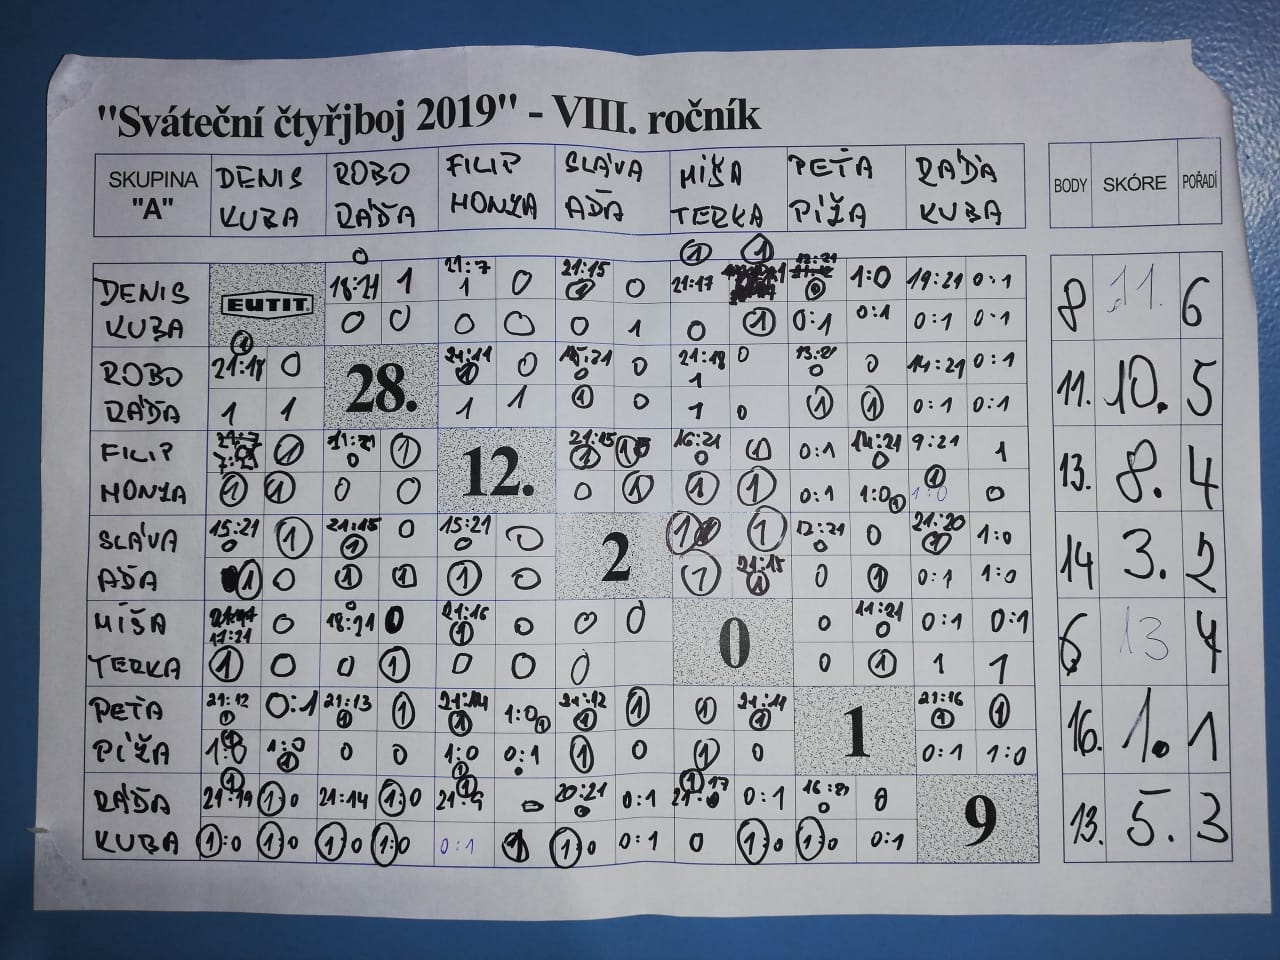 "Sváteční čtyřjboj 2019" - VIII. ročník
SKUPINA "A" DENIS KUBA ROBO RÁĎA FILIP HONZA SLÁVA AĎA MÍŠA TERKA PEŤA PÍŽA RÁĎA KUBA BODY SKÓRE POŘADÍ
0 1 1
DENIS 18:21 1 21:7 0 21:15 0 21:17 12:21 1:0 19:21 0:1
EUTIT 1 1 0
KUBA 0 0 0 0 0 1 0 1 0:1 0:1 0:1 0:1 8 11. 6
1
ROBO 21:18 0 28. 21:11 0 15:21 0 21:18 0 13:21 0 14:21 0:1
1 0 1 0
RÁĎA 1 1 1 1 1 0 1 0 1 1 0:1 0:1 11. 10. 5
FILIP 7:21 1 11:21 1 12. 21:15 1 16:21 1 0:1 14:21 9:21 1
0 1 0 0
HONZA 1 1 0 0 0 1 1 1 0:1 1:0 1 1:0 0 13. 8. 4
SLÁVA 15:21 1 21:15 0 15:21 0 2 1 1 12:21 0 21:20 1:0
0 1 0 0 1
AĎA 1 0 1 1 1 0 1 21:15 0 1 0:1 1:0 14 3. 2
1
MÍŠA 17:21 0 18:21 0 21:16 0 0 0 0 0 11:21 0:1 0:1
1 0
TERKA 1 0 0 1 0 0 0 0 1 1 1 6 13 4
PEŤA 21:12 0:1 21:13 1 21:14 1:0 21:12 1 1 21:11 1 21:16 1
PÍŽA 1:0 1:0 0 0 1:0 0:1 1 0 1 0 0:1 1:0 16. 1. 1
RÁĎA 21:19 1:0 21:14 1:0 21:9 0 20:21 0:1 21:17 0:1 16:21 0 9
KUBA 1:0 1:0 1:0 1:0 0:1 1 1:0 0:1 0 1:0 1:0 0:1 13. 5. 3